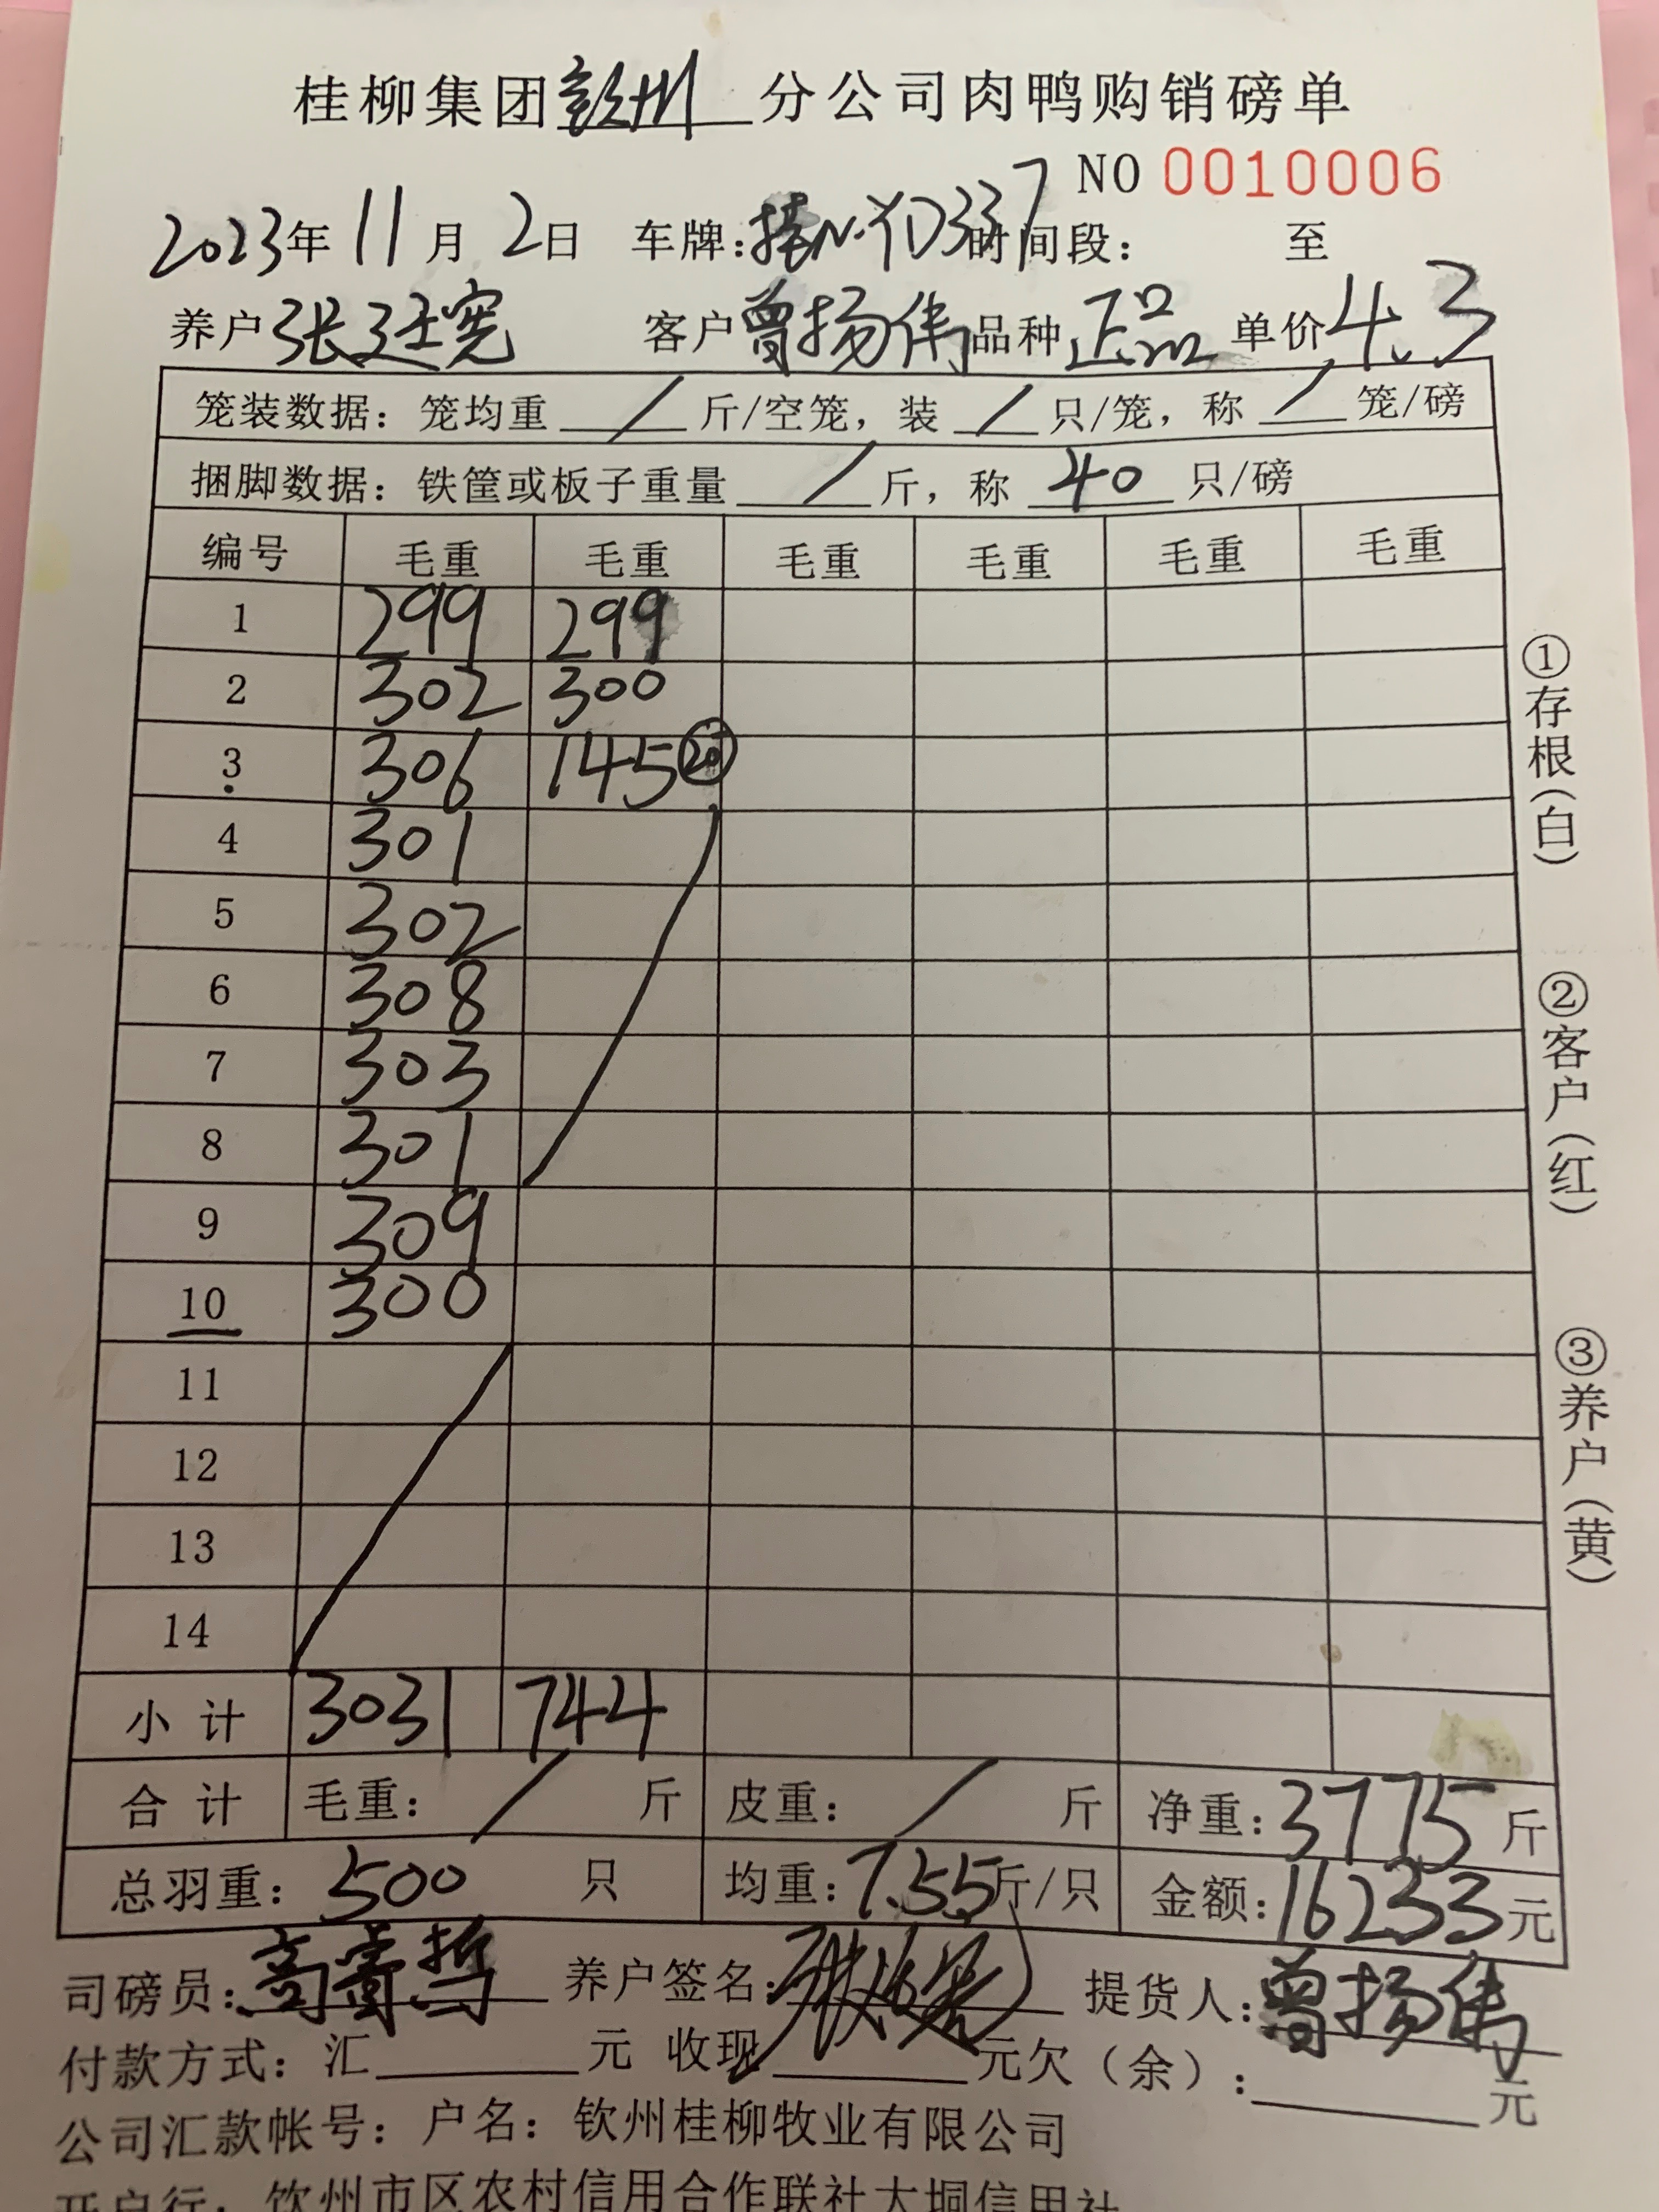 桂柳集团钦州分公司肉鸭购销磅单
NO 0010006
2023年 11月 2日 车牌:桂N·YD337 时间段: 至
养户 张廷宪 客户 曾扬伟 品种 正品 单价 4.3
笼装数据: 笼均重 / 斤/空笼, 装 / 只/笼, 称 / 笼/磅
捆脚数据: 铁筐或板子重量 / 斤, 称 40 只/磅
编号 毛重 毛重 毛重 毛重 毛重 毛重
1 299 299
2 302 300
3 306 145 20
4 301
5 302
6 308
7 303
8 301
9 309
10 300
11
12
13
14
小计 3031 744
合计 毛重: / 斤 皮重: / 斤 净重: 3775 斤
总羽重: 500 只 均重: 7.55 斤/只 金额: 16233 元
司磅员: 养户签名: 提货人: 曾扬伟
付款方式: 汇 元 收现 元欠(余): 元
公司汇款帐号: 户名: 钦州桂柳牧业有限公司
开户行: 钦州市区农村信用合作联社大垌信用社
①存根(白)
②客户(红)
③养户(黄)